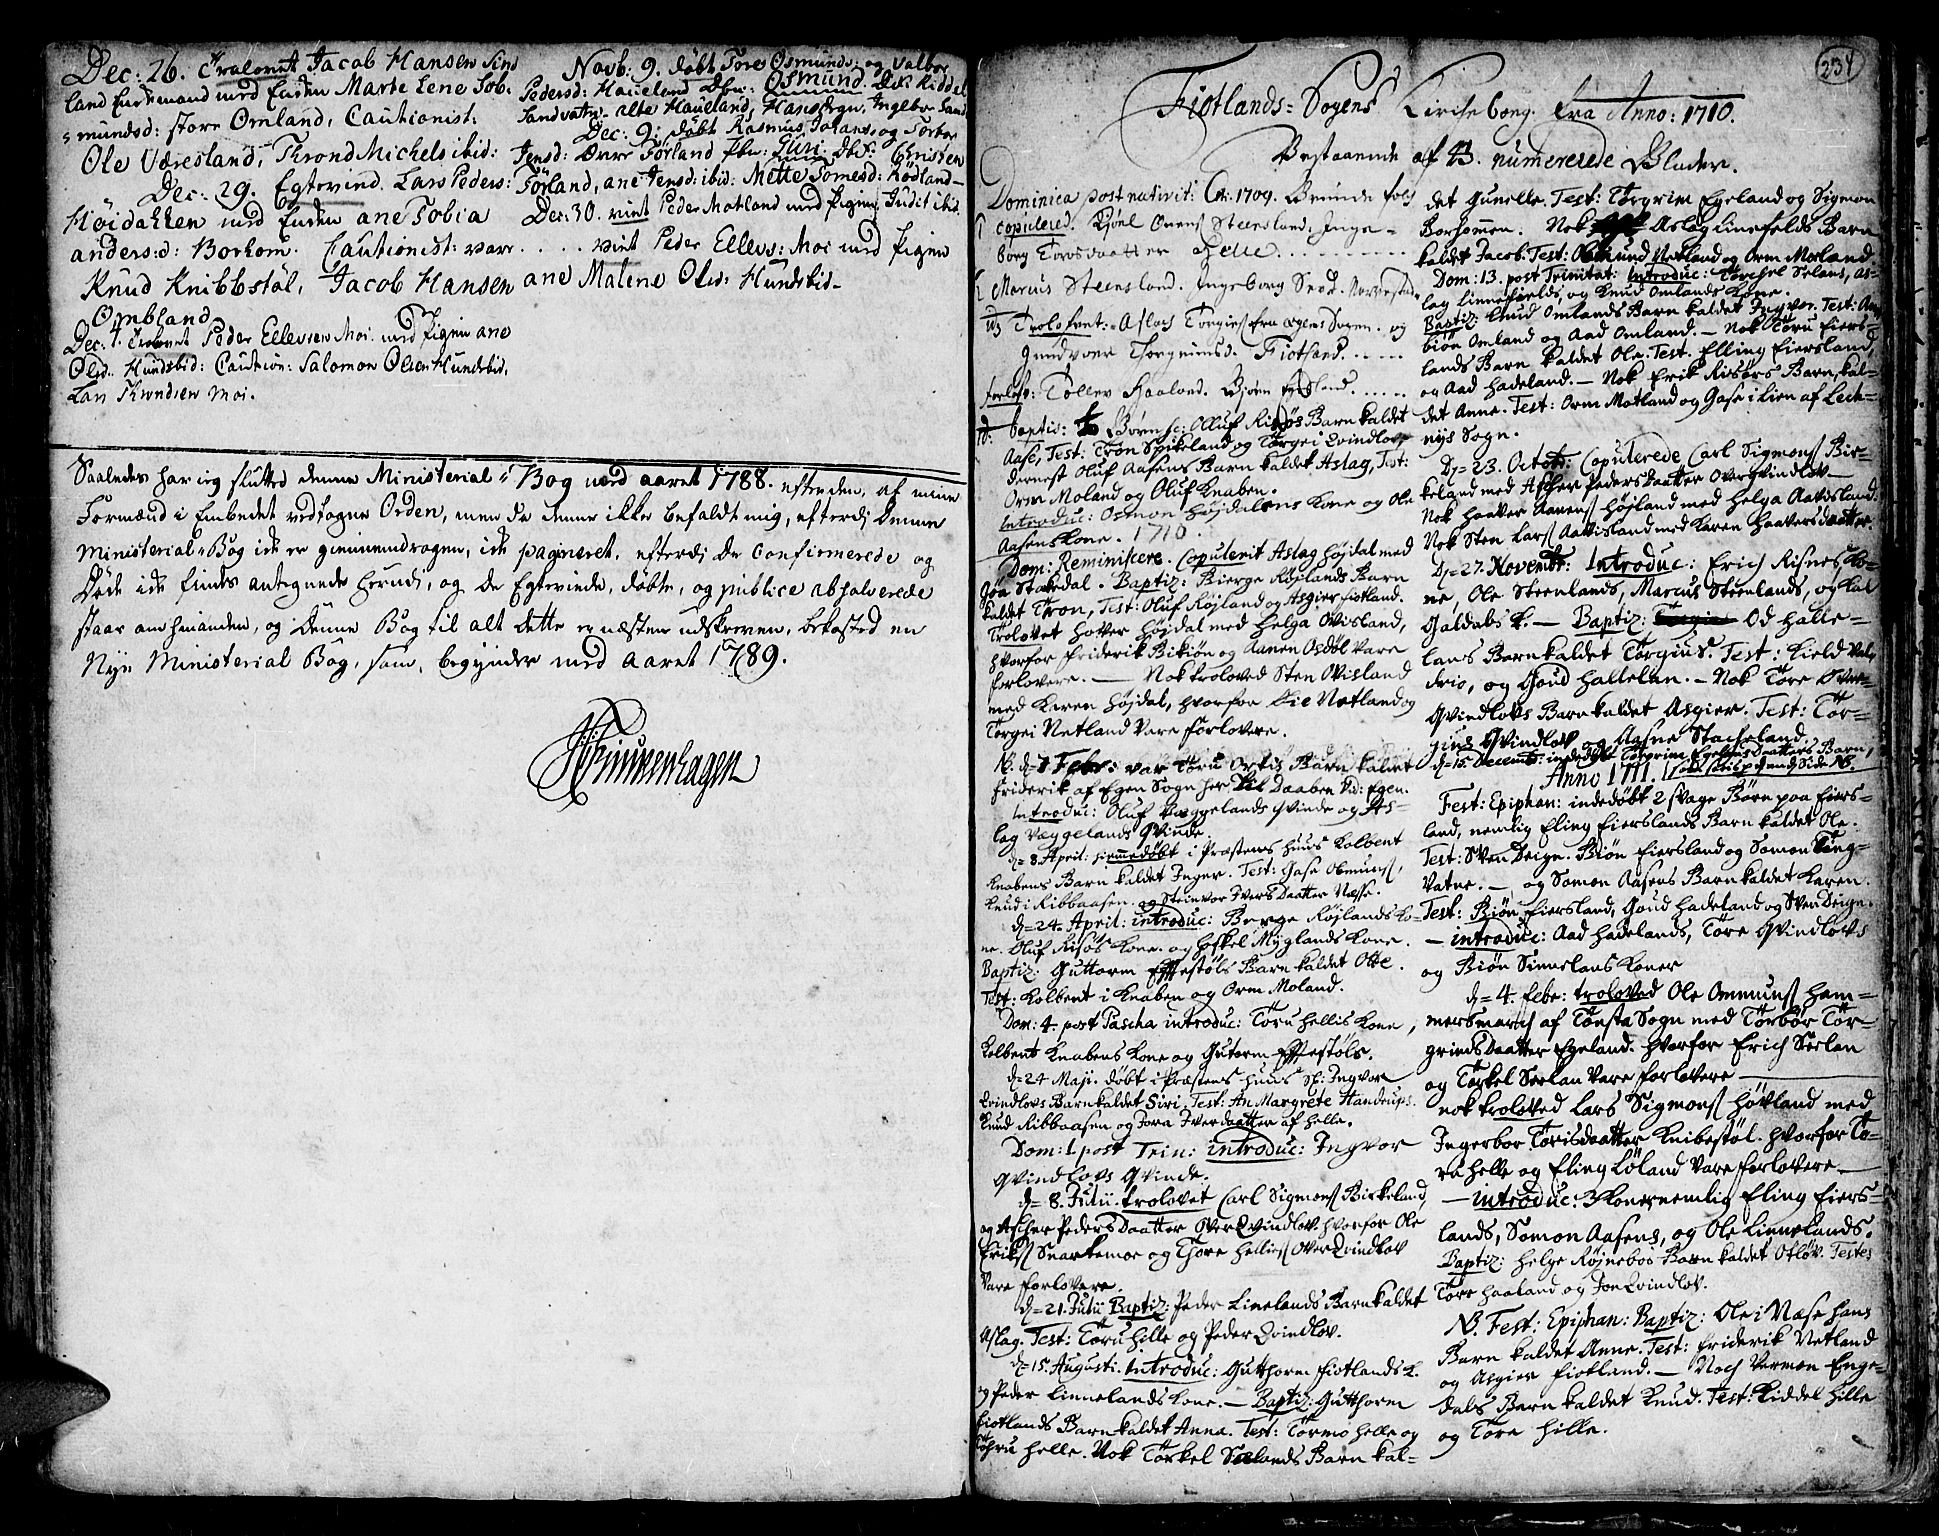 Dec: 26. Trolovet Jacob Hansen Sind
land Enkemand med Enken Marte Lene Sob:
smundsd: store Omland, Cautionist:
Ole Væresland, Thrond Michels ibid:
Dec: 29. Egtevind. Lars Peders:
Høidalken med Enken ane Tobia
anders:d: Borkom. Cautionist: vare
Knud Knibbstøl, Jacob Hansen
Ombland
Dec: 4. Trolovet Peder Ellevsen Moi. med Pigen ane
Olsd. Hundsbid: Caution: Salomon Olsen Hundsbid,
Lars Throndsen moi.
Novb: 9. døbt Tore Osmunds: og Valbor
Pedersd: Haueland Dbn: Osmund. Dvi: Kiddel
Sandvatn. alte Haueland, Hans
Dec: 9: døbt Rasmus og Torbor
Jensd: Øvre Førland Pbn: Guri. Christen
Førland, ane Jensd: ibid: Mette Tomesd: Rødland
Dec: 30. vint Peder Motland med Pigen Judit ibid.
. . . . vint Peder Ellevs: Moi med Pigen
ane Malene Olsd: Hundsbid
Saaledes har ieg sluttet denne Ministerial-Bog med aaret 1788. efter den, af mine
Formænd i Embedet vedtagne Orden, men da denne ikke befaldt mig, efterdi denne
Ministerial-Bog ikke er giennemdragen, ikke pagineret, efterdi De Confirmerede og
Døde ikke findes antegnede herudi, og de Egteviede, døbte, og publice absolverede
staar om hinanden, og denne Bog til alt dette er næsten udskreven, bekosted en
Nye Ministerial Bog, som, begynder med Aaret 1789.
234
Fiotlands-Sogens Kirkebog. fra Anno: 1710.
Bestaaende af 43. numererede Blader.
Dominica post nativit: Chr: 1709.
copulered. Kjøel Steensland: Inge=
borg Torsdaatter Helle . . . . .
Marcus Steensland. Ingeborg
Trolofvet: Aslag Torgies fra Egens Sogen. og
Gundvore Thorgrimsd. Fiotland . . . .
forlof: Tollev Haaland. Bjøren . . . .
baptis: Børn sc: Olluf Risøs Barn kaldet
Aase, Test: Tron Spikeland og Torgei Qvindlov
dernest Oluf Aasens Barn kaldet Aslag, Test:
Orm Moland og Oluf Knaben.
Introduc: Osmon Højdalens Kone og Ole
Aasens Kone. 1710.
Dom: Reminiscere. Copulerit Aslag Højdal med
Gøa Stakedal. Baptiz: Bierge Røjlands Barn
kaldet Tron, Test: Oluf Røjland og Asgier Fiotland.
Trolovet Hover Højdal med Helga Ovisland,
hvorfor Friderik Bikiøn og Aanen Osdøl vare
forlovere. — Nok troloved Sten Ovisland
med Karen Højdal, hvorfor Eie Netland og
Torgei Netland vare forlovere.
N. d= 7 Febr: var Toru Barn kaldet
Friderik af Egen Sogn her til Daaben Vid: Egen.
Introduc: Oluf Væggelands Qvinde og As=
lag Væggelands Qvinde.
d= 8. April: hiemmedøbt i Præstens huus Kolbent
Knabens Barn kaldet Inger. Test: Gase Osmuns,
Knud i Ribbaasen og Steinvor Ivers Daatter Næsse.
d= 24. April: introduc: Berge Røjlands Ko=
ne. Oluf Risøs Kone. og Hoskel Myglands Kone.
Baptiz: Guttorm Eftestøls Barn kaldet Otte.
Test: Kolbent i Knaben og Orm Moland.
Dom: 4. post Pascha introduc: Toru Hellis Kone,
Kolbent Knabens Kone og Gutorm Eftestøls.
d= 24 Maji. døbt i Præstens huus sc: Ingvor
Qvindlovs Barn kaldet Siri. Test: An Margrete Handrups.
Knud Ribbaasen og Jora Iversdaatter af Helle.
Dom: 1. post Trin: introduc: Ingvor
Qvindlovs Qvinde.
d= 8. Julii. trolovet Carl Sigmons Birkeland,
og Ascher Peders Daatter Over Qvindlov. hvorfor Ole
Eriks Snartemoe og Thore Hellis Over Qvindlov
Vare Forlovere.
d= 21. Julii Baptiz: Peder Linelands Barn kaldet
Aslag. Test: Toru Hille og Peder Qvindlov.
d= 15. Augusti. Introduc: Gutthorm Fiotlands K.
og Peder Linnelands Kone. — Baptiz: Gutthorm
Fiotlands Barn kaldet Anna. Test: Tormo Helle og
Tohru Helle. Nok Torkel Sælands Barn kal=
det Gunelle. Test: Torgrim Egeland og Sigmon
Borhomen. Nok Aslag Linnefelds Barn
kaldet Jacob. Test: Osmund Netland og Orm Moland.
Dom: 13. post Trinitat: Introduc: Torchel Selans, As=
lag Linnefields, og Knud Omlands Kone.
Baptiz: Knud Omlands Barn kaldet Ingvor. Test: Am=
biøn Omland og Aad Omland. — Nok Toru Eiers=
lands Barn kaldet Ole. Test. Elling Eiersland,
og Aad Hadeland. — Nok Erik Risøes Barn, kal=
det Anne. Test: Orm Motland og Gase i Lien af Lech=
nijs Sogn.
D= 23. Octobr: Copulerede Carl Sigmons Bir=
keland med Ascher Peders Daatter Over Qvindlov —
Nok Haaver Aanens Højland med Helga Aavisland.
Nok Sten Lars Aavisland med Karen Haavers Daatter.
D= 27. Novembr: Introduc: Erich Risnes Ko=
ne, Ole Steenlands, Marcus Steenlands, og Kal
Galdals K. — Baptiz: Od Halle=
lans Barn kaldet Torgius. Test: Kield Vat
drio, og Goud Hallelan. — Nok Tore Over=
Qvindlovs Barn kaldet Asgier. Test: Tor=
gius Qvindlov og Aasne Stacheland.
d= 15. Decembr: indedøbt Torgrim Egelands daatters Barn,
Anno 1711.
Fest: Epiphan: indedøbt 2 svage Børn paa Eiers=
land, nemlig Eling Eierslands Barn kaldet Ole.
Test: Sven Deign. Biøn Eiersland og Somon Ting=
Vatne. — og Somon Aasens Barn kaldet Karen.
Test: Biøn Eiersland, Goud Hadeland og Sven Deign.
— introduc: Aad Hadelands, Tore Qvindlovs
og Biøn Sinnelans Koner
d= 4. Febr: troloved Ole Ommuns Ham=
mersmarch af Tonsta Sogn med Torbor Tor=
grims Daatter Egeland. Hvorfor Erich Seelan
og Torkel Seelan Vare forlovere —
nok troloved Lars Sigmons Høvland med
Ingerbor Torisdaatter Knibestøl. hvorfor To=
ru Helle og Eling Løland Vare forlovere —
— introduc: 3 Koner nemlig Eling Eiers=
lands, Somon Aasens, og Ole Linnelands.
Baptiz: Helge Røjnebos Barn kaldet Otløv. Testes
Tore Haaland og Jon Qvindlov.
NB. Fest: Epiphan: Baptiz: Ole i Næse hans
Barn kaldet Anne. Test: Friderik Netland
og Asgier Fiotland. — Noch Vermon Enge=
dals Barn kaldet Knud. Test: Kiddel Hille
og Tore Hille.